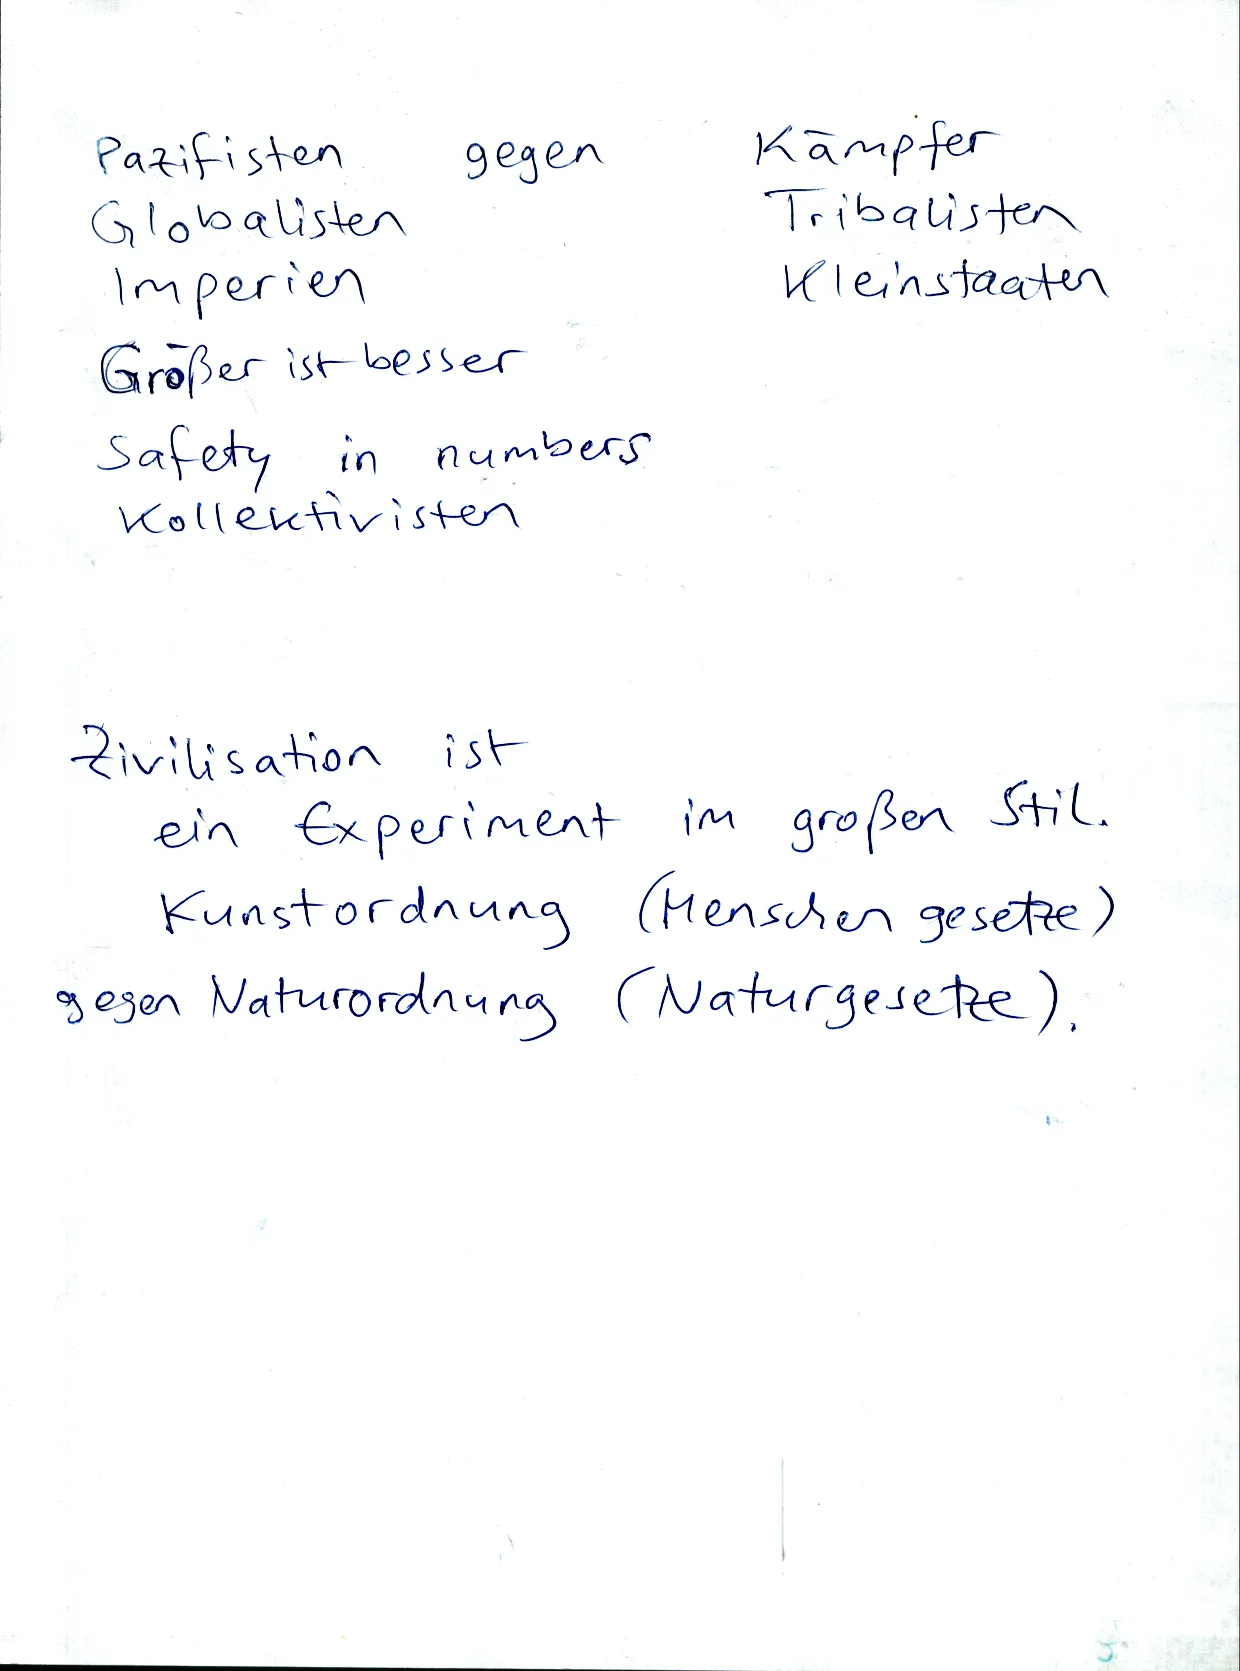 Pazifisten gegen Kämpfer
Globalisten Tribalisten
Imperien Kleinstaaten
Größer ist besser
Safety in numbers
Kollektivisten
Zivilisation ist
ein Experiment im großen Stil.
Kunstordnung (Menschengesetze)
gegen Naturordnung (Naturgesetze).